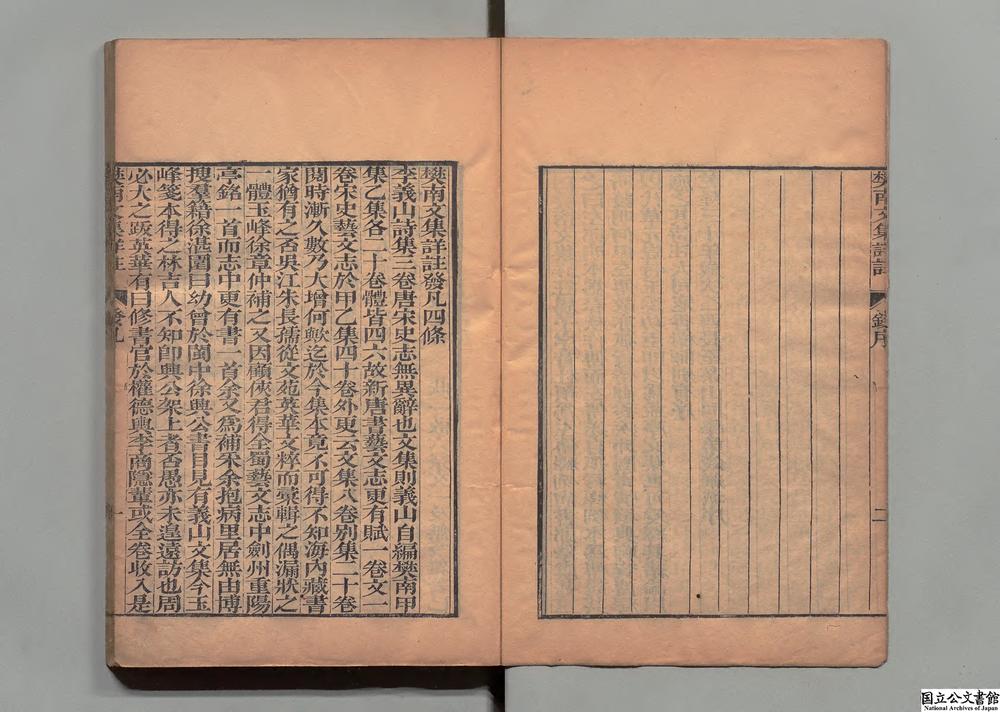 樊南文集詳註
錢序
二
樊南文集詳註發凡四條
李義山詩集三卷唐宋史志無異辭也文集則義山自編樊南甲
集乙集各二十卷體皆四六故新唐書藝文志更有賦一卷文一
卷宋史藝文志於甲乙集四十卷外更云文集八卷別集二十卷
閱時漸久數乃大增何歟迄於今集本竟不可得不知海內藏書
家猶有之否吳江朱長孺從文苑英華文粹而彙輯之偶漏狀之
一體玉峰徐章仲補之又因顧俠君得全蜀藝文志中劍州重陽
亭銘一首而志中更有書一首余又爲補采余抱病里居無由博
搜羣籍徐湛園曰幼曾於閩中徐興公書目見有義山文集今玉
峰箋本得之林吉人不知卽興公架上者否愚亦未遑遠訪也周
必大之跋英華有曰修書官於權德輿李商隱輩或全卷收入是
樊南文集詳註
發凡
一